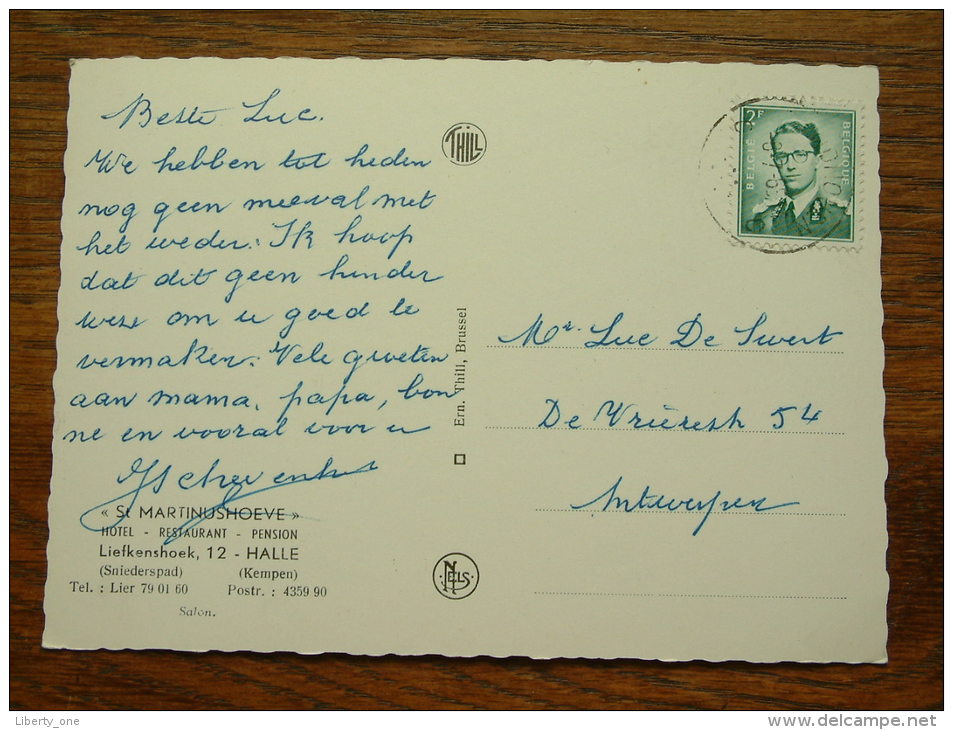 Beste Luc.
We hebben tot heden
nog geen meeval met
het weder. Ik hoop
dat dit geen hinder
weze om u goed te
vermaken. Vele groeten
aan mama, papa, bon
ne en vooral voor u
« St MARTINUSHOEVE »
HOTEL - RESTAURANT - PENSION
Liefkenshoek, 12 - HALLE
(Sniederspad) (Kempen)
Tel. : Lier 79 01 60 Postr. : 4359 90
Salon.
THILL
Ern. Thill, Brussel
NELS
2F
BELGIË
BELGIQUE
Mr. Luc De Swert
De 54
Antwerpen
Liberty_one
http://www.delcampe.net